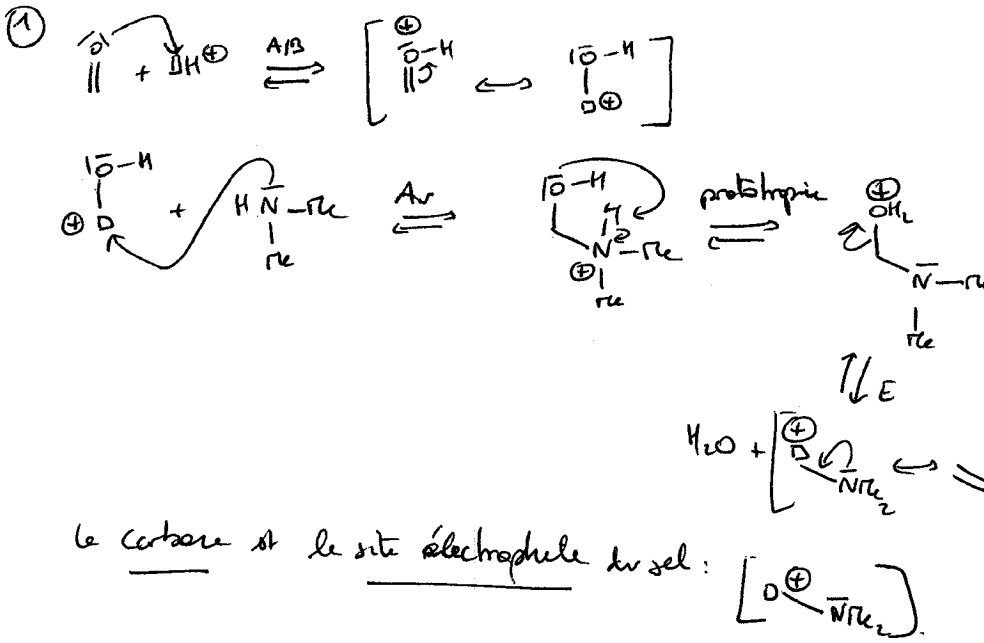 ①
|O̅| + □H⊕ A/B ⊕ O̅–H ↔ |O̅–H □⊕
|O̅–H ⊕ □ + H N̅–Me Me Av |O̅–H H N–Me ⊕ Me prototropie ⊕ OH₂ N̅–Me Me
E
H₂O + ⊕ □ N̅Me₂ ↔
Le carbone est le site électrophile du sel : [□ ⊕ N̅Me₂].